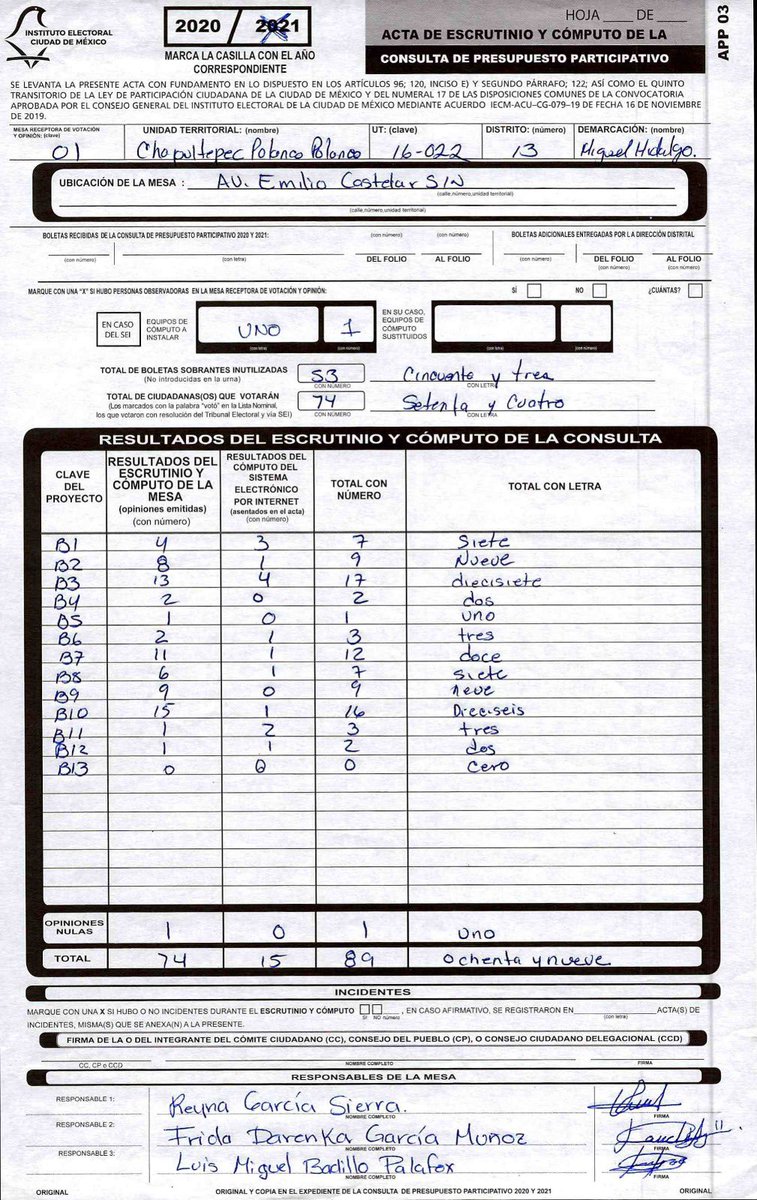 INSTITUTO ELECTORAL
CIUDAD DE MÉXICO
2020 / 2021
MARCA LA CASILLA CON EL AÑO
CORRESPONDIENTE
HOJA ____ DE ____
ACTA DE ESCRUTINIO Y CÓMPUTO DE LA
CONSULTA DE PRESUPUESTO PARTICIPATIVO
APP 03
SE LEVANTA LA PRESENTE ACTA CON FUNDAMENTO EN LO DISPUESTO EN LOS ARTÍCULOS 96; 120, INCISO E) Y SEGUNDO PÁRRAFO; 122; ASÍ COMO EL QUINTO
TRANSITORIO DE LA LEY DE PARTICIPACIÓN CIUDADANA DE LA CIUDAD DE MÉXICO Y DEL NUMERAL 17 DE LAS DISPOSICIONES COMUNES DE LA CONVOCATORIA
APROBADA POR EL CONSEJO GENERAL DEL INSTITUTO ELECTORAL DE LA CIUDAD DE MÉXICO MEDIANTE ACUERDO IECM-ACU-CG-079-19 DE FECHA 16 DE NOVIEMBRE
DE 2019.
MESA RECEPTORA DE VOTACIÓN Y OPINIÓN: (clave) UNIDAD TERRITORIAL: (nombre) UT: (clave) DISTRITO: (número) DEMARCACIÓN: (nombre)
01 Chapultepec Polanco Polanco 16-022 13 Miguel Hidalgo.
UBICACIÓN DE LA MESA : AV. Emilio Castelar S/N
(calle,número,unidad territorial)
(calle,número,unidad territorial)
BOLETAS RECIBIDAS DE LA CONSULTA DE PRESUPUESTO PARTICIPATIVO 2020 Y 2021: (con número) (con número) BOLETAS ADICIONALES ENTREGADAS POR LA DIRECCIÓN DISTRITAL
(con número) (con letra) DEL FOLIO AL FOLIO (con número) DEL FOLIO (con número) AL FOLIO (con número)
MARQUE CON UNA "X" SI HUBO PERSONAS OBSERVADORAS EN LA MESA RECEPTORA DE VOTACIÓN Y OPINIÓN: SÍ NO ¿CUÁNTAS?
EN CASO DEL SEI EQUIPOS DE CÓMPUTO A INSTALAR UNO (con letra) 1 (con número) EN SU CASO, EQUIPOS DE CÓMPUTO SUSTITUIDOS (con letra) (con número)
TOTAL DE BOLETAS SOBRANTES INUTILIZADAS 53 Cincuenta y tres
(No introducidas en la urna) CON NÚMERO CON LETRA
TOTAL DE CIUDADANAS(OS) QUE VOTARÁN 74 Setenta y Cuatro
(Los marcados con la palabra "votó" en la Lista Nominal, CON NÚMERO CON LETRA
los que votaron con resolución del Tribunal Electoral y vía SEI)
RESULTADOS DEL ESCRUTINIO Y CÓMPUTO DE LA CONSULTA
CLAVE DEL PROYECTO RESULTADOS DEL ESCRUTINIO Y CÓMPUTO DE LA MESA (opiniones emitidas) (con número) RESULTADOS DEL CÓMPUTO DEL SISTEMA ELECTRÓNICO POR INTERNET (asentados en el acta) (con número) TOTAL CON NÚMERO TOTAL CON LETRA
B1 4 3 7 Siete
B2 8 1 9 Nueve
B3 13 4 17 diecisiete
B4 2 0 2 dos
B5 1 0 1 uno
B6 2 1 3 tres
B7 11 1 12 doce
B8 6 1 7 siete
B9 9 0 9 neve
B10 15 1 16 Dieciseis
B11 1 2 3 tres
B12 1 1 2 dos
B13 0 0 0 cero
OPINIONES NULAS 1 0 1 uno
TOTAL 74 15 89 ochenta y nueve
INCIDENTES
MARQUE CON UNA X SI HUBO O NO INCIDENTES DURANTE EL ESCRUTINIO Y CÓMPUTO SI NO , EN CASO AFIRMATIVO, SE REGISTRARON EN número ACTA(S) DE
INCIDENTES, MISMA(S) QUE SE ANEXA(N) A LA PRESENTE.
FIRMA DE LA O DEL INTEGRANTE DEL CÓMITE CIUDADANO (CC), CONSEJO DEL PUEBLO (CP), O CONSEJO CIUDADANO DELEGACIONAL (CCD)
CC, CP o CCD NOMBRE COMPLETO FIRMA
RESPONSABLES DE LA MESA
RESPONSABLE 1: Reyna García Sierra.
NOMBRE COMPLETO FIRMA
RESPONSABLE 2: Frida Darenka García Muñoz
NOMBRE COMPLETO FIRMA
RESPONSABLE 3: Luis Miguel Badillo Palafox
NOMBRE COMPLETO FIRMA
ORIGINAL ORIGINAL Y COPIA EN EL EXPEDIENTE DE LA CONSULTA DE PRESUPUESTO PARTICIPATIVO 2020 Y 2021 ORIGINAL